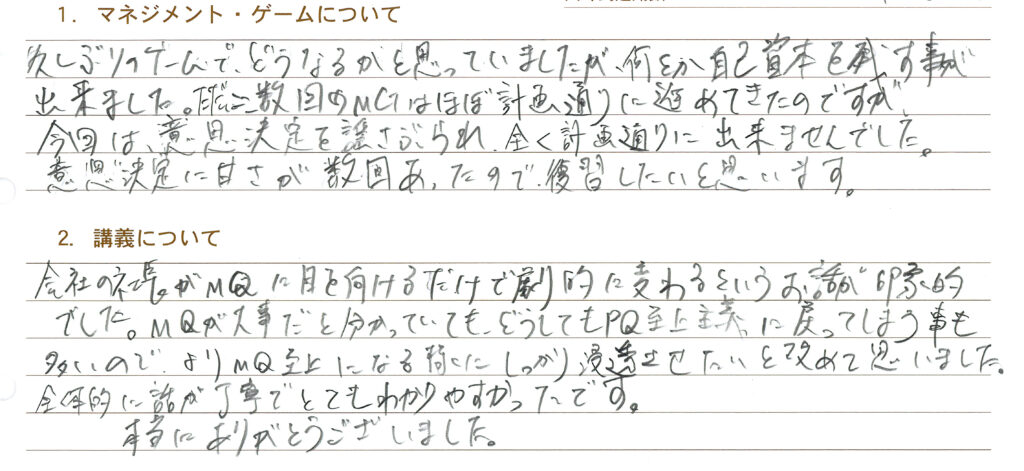 1. マネジメント・ゲームについて
久しぶりのゲームで、どうなるかと思っていましたが、何とか自己資本を残す事が
出来ました。ただここ数回のMGはほぼ計画通りに進めてきたのですが、
今回は、意思決定を揺さぶられ、全く計画通りに出来ませんでした。
意思決定に甘さが数回あったので、復習したいと思います。
2. 講義について
会社の社長がMQに目を向けるだけで劇的に変わるというお話が印象的
でした。MQが大事だと分かっていても、どうしてもPQ至上主義に戻ってしまう事も
多いので、よりMQ至上になる様に しっかり浸透させたいと改めて思いました。
全体的に話が丁寧でとてもわかりやすかったです。
本当にありがとうございました。